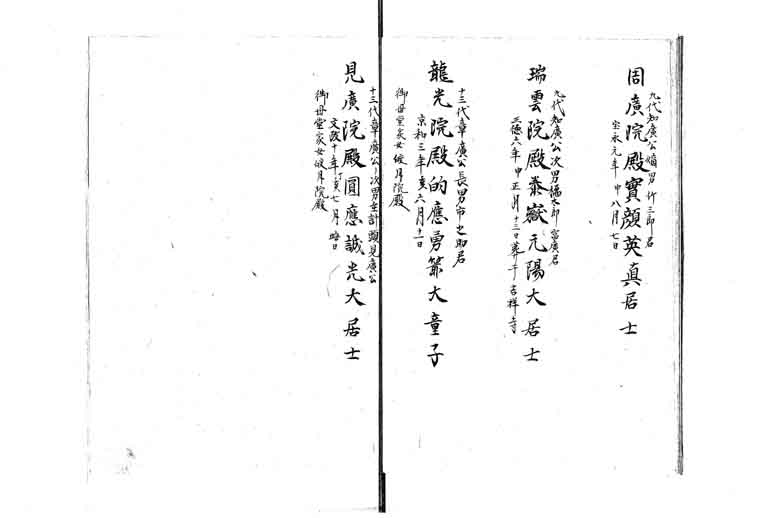 九代知廣公嫡男 竹三郎君
周廣院殿實顔英真居士
宝永元年 申 八月七日
九代知廣公次男 富廣君
瑞雲院殿泰嶽元陽大居士
正徳六年 申 正月十三日葬于吉祥寺
十三代章廣公長男市之助君
龍光院殿的應勇箭大童子
享和三年亥六月十一日
御母堂家女 月院殿
十三代章廣公ノ次男主計頭見廣公
見廣院殿圓應誠光大居士
文政十年丁亥七月晦日
御母堂家女 月院殿